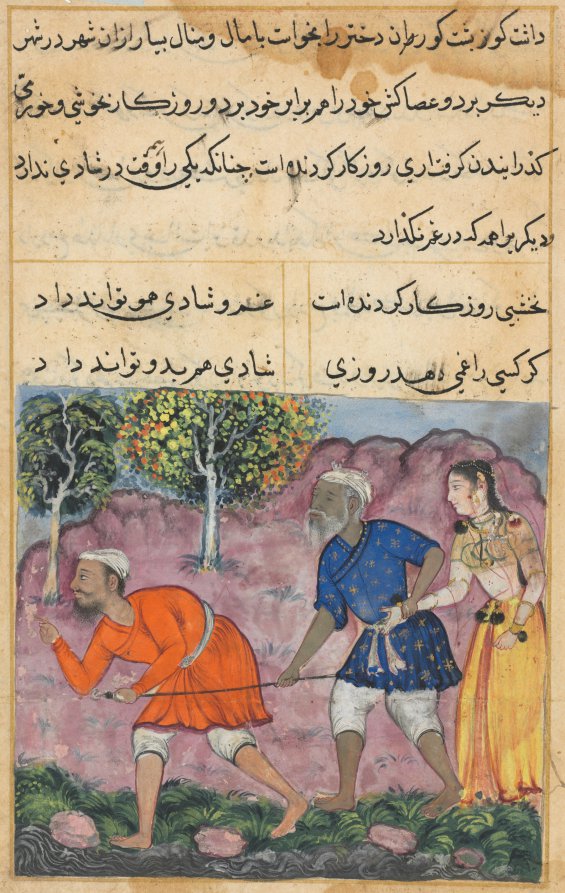 داشت کوزپشت کور ان دختر را بخواست با مال و منال بسیار ازان شهر در شهر
دیکر برد و عصاکش خود را هم برابر خود برد و روزکار بخوشی و خورمی
کذرایندن کرفت اری روزکار کردنده است چنانکه یکی را وقت در شادی ندارد
دیکر یرا همه که در غم نکذارد
نخشبی روزکار کردنده است غم و شادی همو تواند داد
کر کسی را غمی دهد روزی شادی هم بدو تواند داد